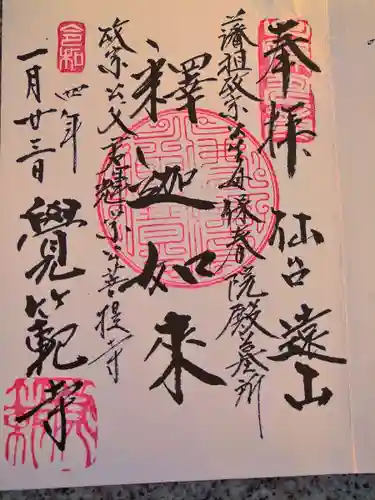 奉拝 仙台 遠山
藩祖政宗公生母保春院殿墓所
釋迦如来
政宗公父君輝宗公菩提寺
令和
四年
一月廿三日
覺範寺